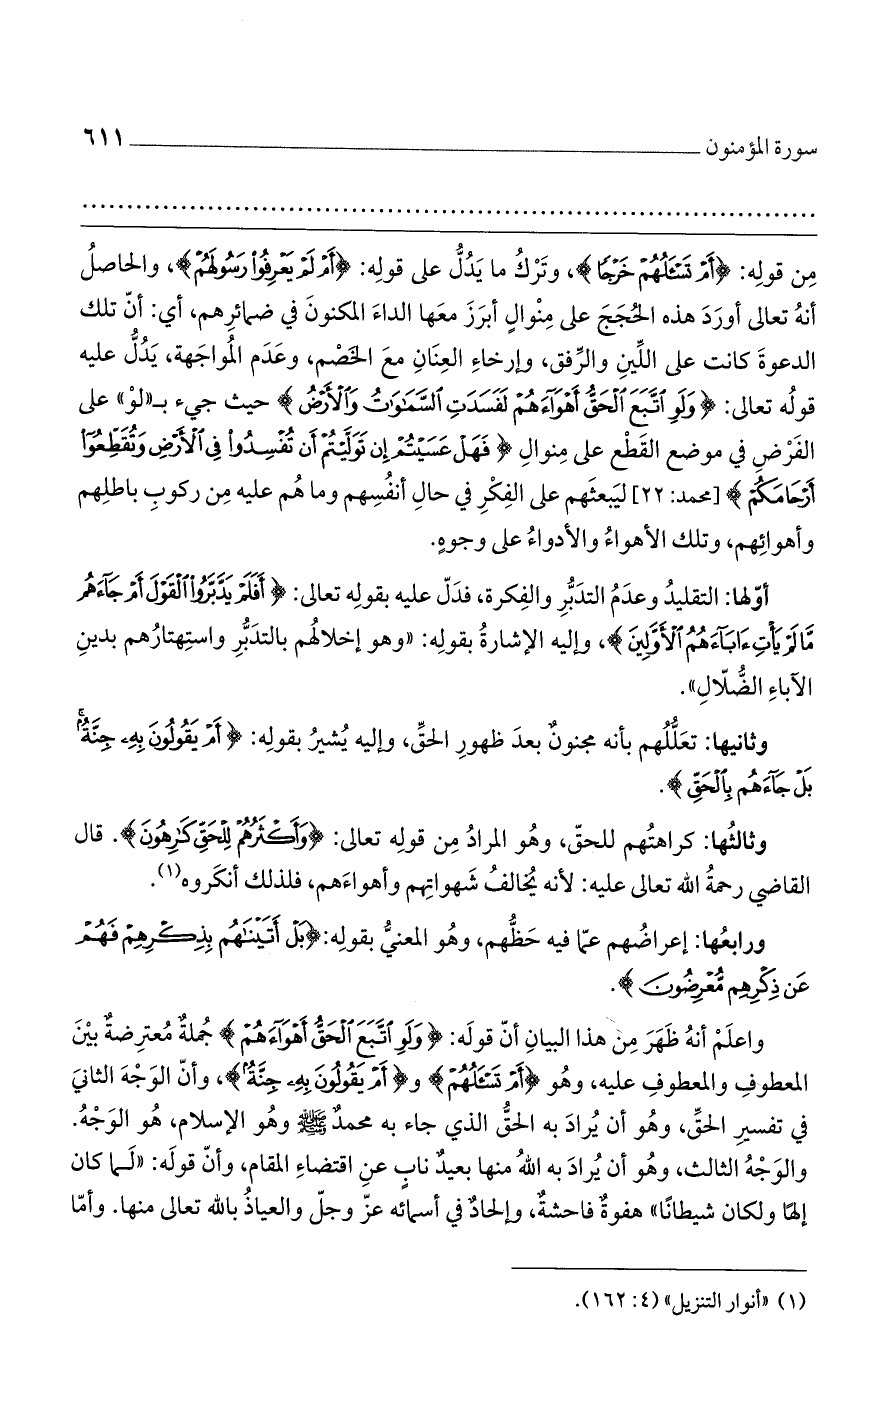 سورة المؤمنون ٦١١
مِن قولِه: ﴿أَمْ تَسْـَٔلُهُمْ خَرْجًا﴾، وتَرْكُ ما يَدُلُّ على قولِه: ﴿أَمْ لَمْ يَعْرِفُوا۟ رَسُولَهُمْ﴾، والحاصلُ
أنهُ تعالى أورَدَ هذه الحُجَجَ على مِنْوالٍ أبرَزَ معَها الداءَ المكنونَ في ضمائرِهم، أي: أنّ تلك
الدعوةَ كانت على اللِّينِ والرِّفق، وإرخاءِ العِنَانِ معَ الخَصْم، وعَدَمِ المُواجَهة، يَدُلُّ عليه
قولُه تعالى: ﴿وَلَوِ ٱتَّبَعَ ٱلْحَقُّ أَهْوَآءَهُمْ لَفَسَدَتِ ٱلسَّمَـٰوَٰتُ وَٱلْأَرْضُ﴾ حيث جيء بـ«لوْ» على
الفَرْضِ في موضع القَطْع على مِنوالِ ﴿فَهَلْ عَسَيْتُمْ إِن تَوَلَّيْتُمْ أَن تُفْسِدُوا۟ فِى ٱلْأَرْضِ وَتُقَطِّعُوٓا۟
أَرْحَامَكُمْ﴾ [محمد: ٢٢] ليَبعثَهم على الفِكْرِ في حالِ أنفُسِهم وما هُم عليه مِن ركوبِ باطلِهم
وأهوائِهم، وتلك الأهواءُ والأدواءُ على وجوهٍ.
أوّلها: التقليدُ وعدَمُ التدَبُّرِ والفِكرة، فدَلّ عليه بقولِه تعالى: ﴿أَفَلَمْ يَدَّبَّرُوا۟ ٱلْقَوْلَ أَمْ جَآءَهُم
مَّا لَمْ يَأْتِ ءَابَآءَهُمُ ٱلْأَوَّلِينَ﴾، وإليه الإشارةُ بقولِه: «وهو إخلالُهم بالتدَبُّرِ واستِهتارُهم بدينِ
الآباءِ الضُّلّالِ».
وثانيها: تعَلُّلُهم بأنه مجنونٌ بعدَ ظهورِ الحقِّ، وإليه يُشيرُ بقولِه: ﴿أَمْ يَقُولُونَ بِهِۦ جِنَّةٌۢ ۚ
بَلْ جَآءَهُم بِٱلْحَقِّ﴾.
وثالثُها: كراهتُهم للحقّ، وهُو المرادُ مِن قولِه تعالى: ﴿وَأَكْثَرُهُمْ لِلْحَقِّ كَـٰرِهُونَ﴾. قال
القاضي رحمةُ الله تعالى عليه: لأنه يُخالفُ شَهواتِهم وأهواءَهم، فلذلك أنكَروه(١).
ورابعُها: إعراضُهم عمّا فيه حَظُّهم، وهُو المعنيُّ بقولِه: ﴿بَلْ أَتَيْنَـٰهُم بِذِكْرِهِمْ فَهُمْ
عَن ذِكْرِهِم مُّعْرِضُونَ﴾.
واعلَمْ أنهُ ظَهَرَ مِن هذا البيانِ أنّ قولَه: ﴿وَلَوِ ٱتَّبَعَ ٱلْحَقُّ أَهْوَآءَهُمْ﴾ جُملةٌ مُعترِضةٌ بيْنَ
المعطوفِ والمعطوفِ عليه، وهُو ﴿أَمْ تَسْـَٔلُهُمْ﴾ و﴿أَمْ يَقُولُونَ بِهِۦ جِنَّةٌۢ﴾، وأنّ الوَجْهَ الثانيَ
في تفسيرِ الحقِّ، وهُو أن يُرادَ به الحقُّ الذي جاء به محمدٌ ﷺ وهُو الإسلام، هُو الوَجْهُ.
والوَجْهُ الثالث، وهُو أن يُرادَ به اللهُ منها بعيدٌ نابٍ عنِ اقتضاءِ المقام، وأنّ قولَه: «لَما كان
إلهًا ولكان شيطانًا» هفوةٌ فاحشةٌ، وإلحادٌ في أسمائه عزّ وجلّ والعياذُ بالله تعالى منها. وأمّا
(١) «أنوار التنزيل» (٤: ١٦٢).